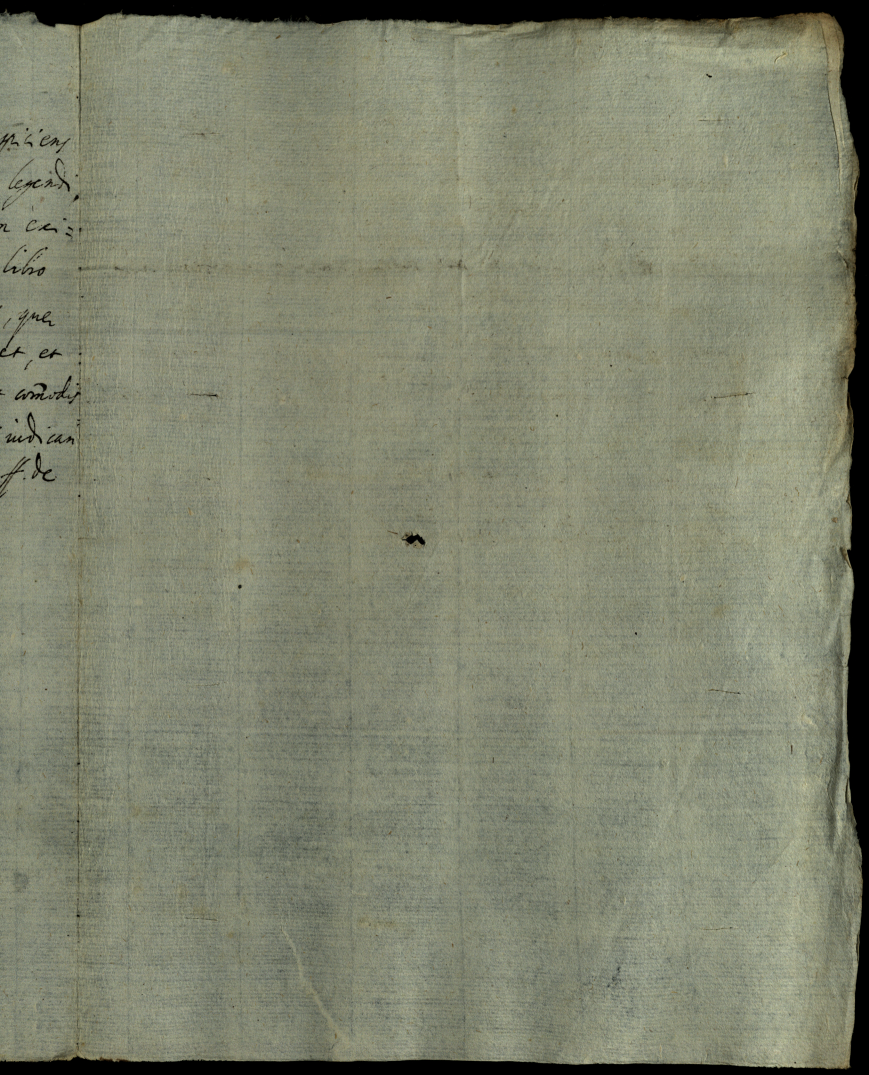 spiciens
legendi,
n exi=
libro
, quem
et, et
com̃odis
iudican
ff. de